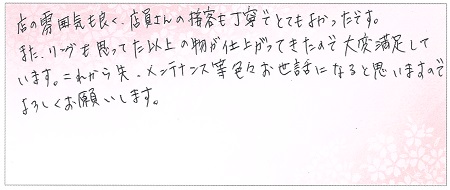 店の雰囲気も良く、店員さんの接客も丁寧でとてもよかったです。
また、リングも思ってた以上の物が仕上がってきたので大変満足して
います。これから先、メンテナンス等色々お世話になると思いますので
よろしくお願いします。